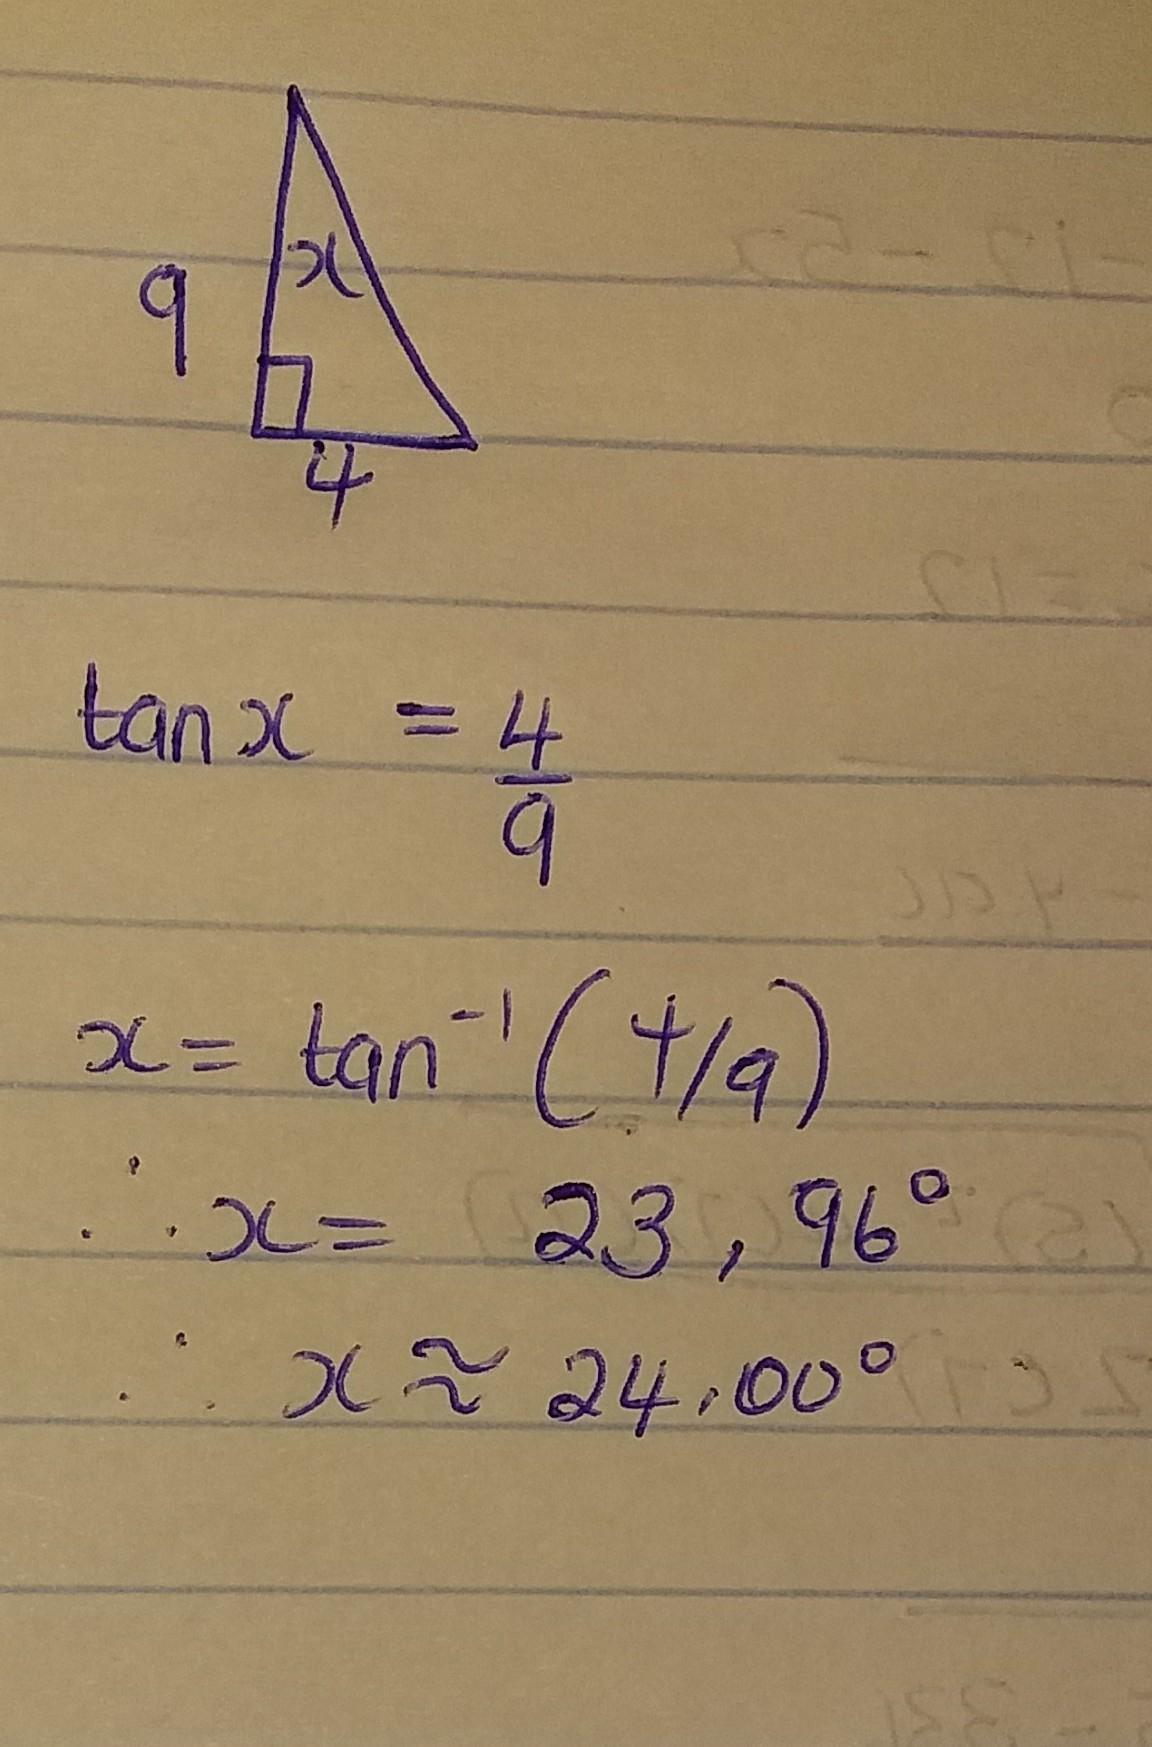 x
9
4
tan x = 4/9
x = tan⁻¹(4/9)
∴ x = 23,96°
∴ x ≈ 24,00°